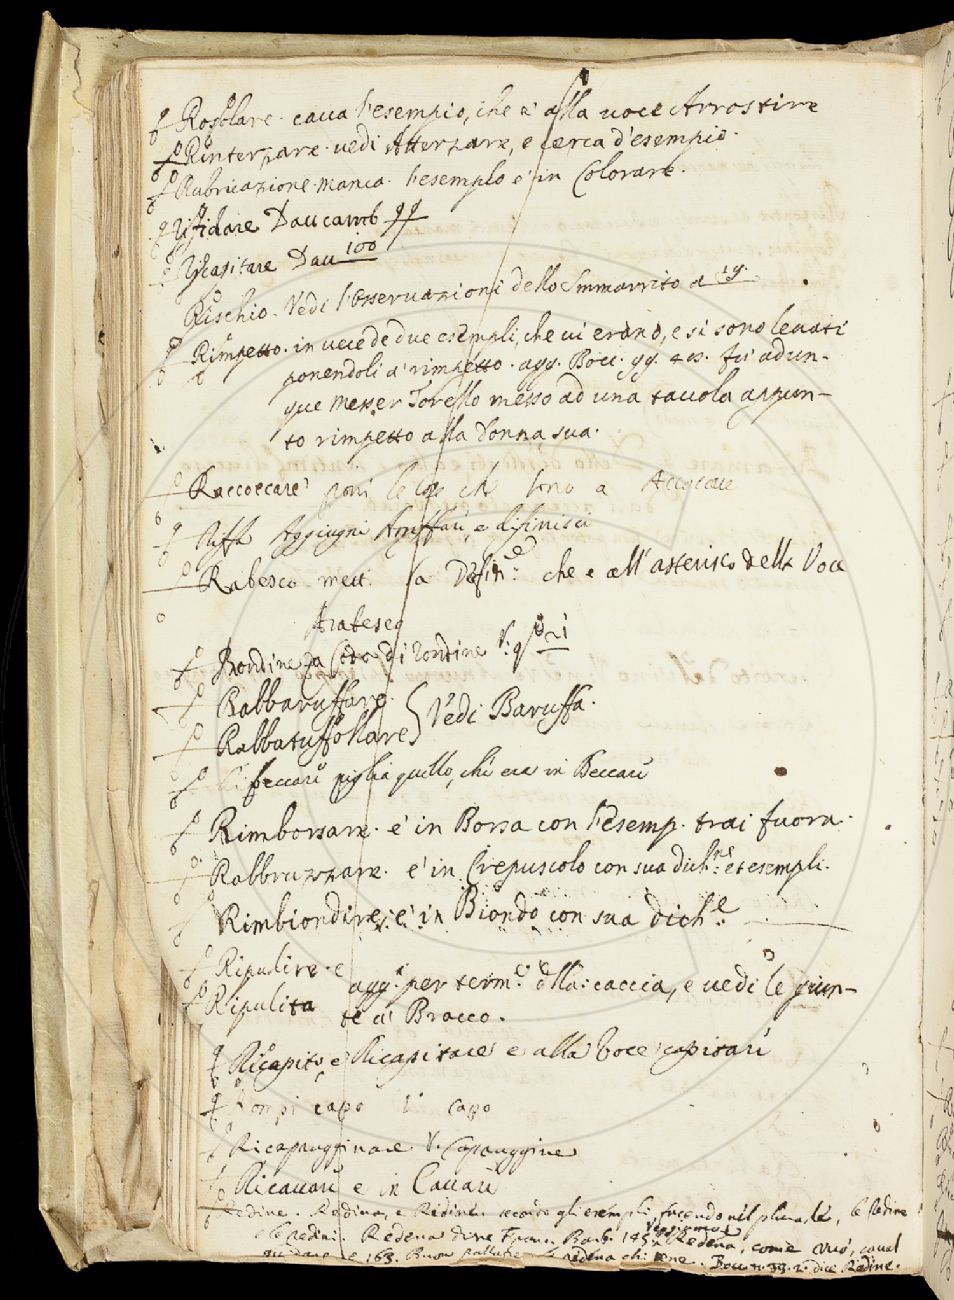 Rosolare. caua l'esempio, che è alla uoce Arrostire
Rinterzare. uedi Atterzare, e cerca d'esempio.
Rubricazione. manca. l'esempio è in Colorare.
Dau 100
Rischio. Vedi l'osseruazioni dello Smmarrito a 19.
Rimpetto. in uece de due esempli, che ui erano, e si sono leuati
ponendoli a' rimpetto. agg. Bocc. gg. fu' adun-
que Messer Torello messo ad una tauola appun-
to rimpetto alla donna sua.
Raccoccare poni le che sono a Accoccare
Ruffa Aggiugni
Rabesco. mett. la Defin:ne che è all'asterisco della Voce
Arabesco
Rondine Coda di rondine V:
Rabbaruffare.
Rabbatuffollare } Vedi Baruffa.
piglia quello, che era in Beccare
Rimborsare. è in Borsa con l'esemp. trai fuora.
Rabbruzzare. è in Crepuscolo con sua dich:ne et esempli.
Rimbiondire, è in Biondo con sua dich:e
Ripulire. e
Ripulita agg. per term:e della caccia, e uedi le giun-
te a' Bracco.
Ricapito, e Ricapitare è alla Voce capitare
Rompi capo V. capo
Ricaprugginare V. Capruggine
Ricauare è in Cauare
Redine. Redina, e Redine. secondo gli esempli, facendo nel plurale, le Redine
e le redini. Redena dere Franc. Barb. 145. Redena, come
e 163. redena chi tene. Bocc. n. 39. 2. dice Redine.